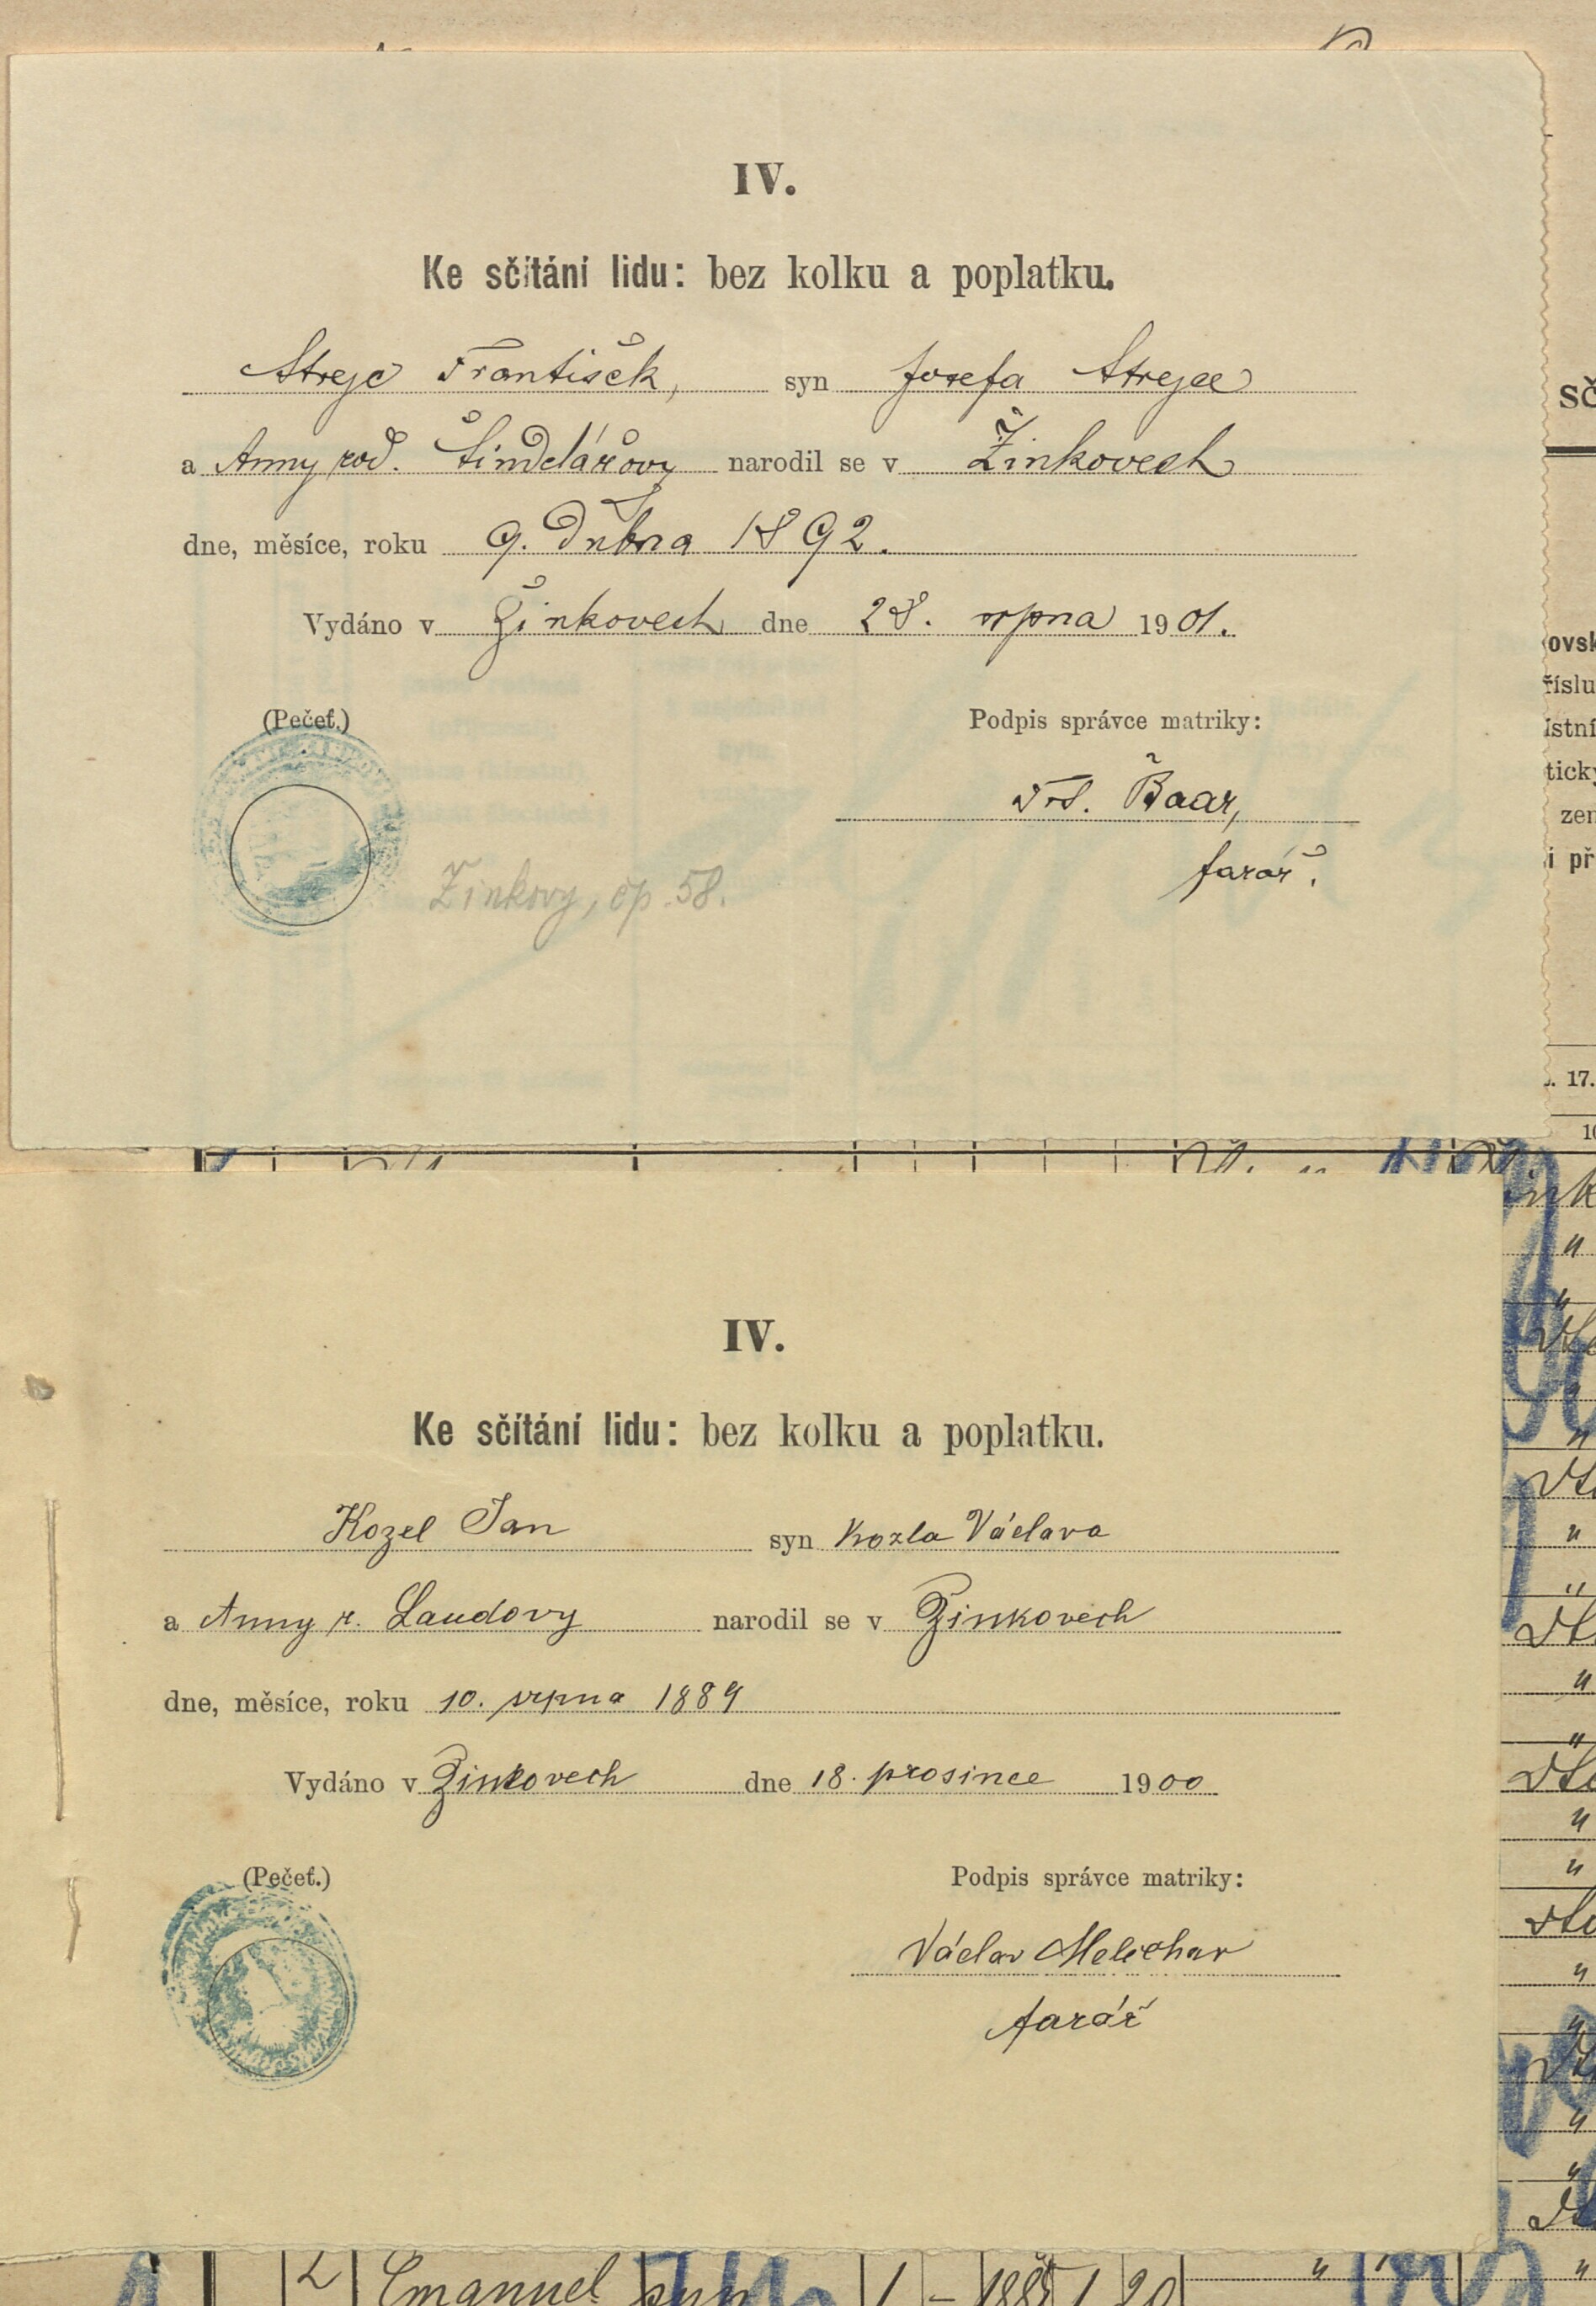 IV.
Ke sčítání lidu: bez kolku a poplatku.
Strejc František, syn Josefa Strejce
a Anny roď. Šindelářovy narodil se v Žinkovech
dne, měsíce, roku 9. Dubna 1892.
Vydáno v Žinkovech dne 28. srpna 1901.
(Pečeť.)
Podpis správce matriky:
Frt. Baar,
farář.
Žinkovy, čp. 58.
IV.
Ke sčítání lidu: bez kolku a poplatku.
Kozel Jan syn Kozla Václava
a Anny r. Laudovy narodil se v Žinkovech
dne, měsíce, roku 10. srpna 1889
Vydáno v Žinkovech dne 18. prosince 1900
(Pečeť.)
Podpis správce matriky:
Václav Melichar
farář
2 Emanuel syn 1 - 1885 1 20 "